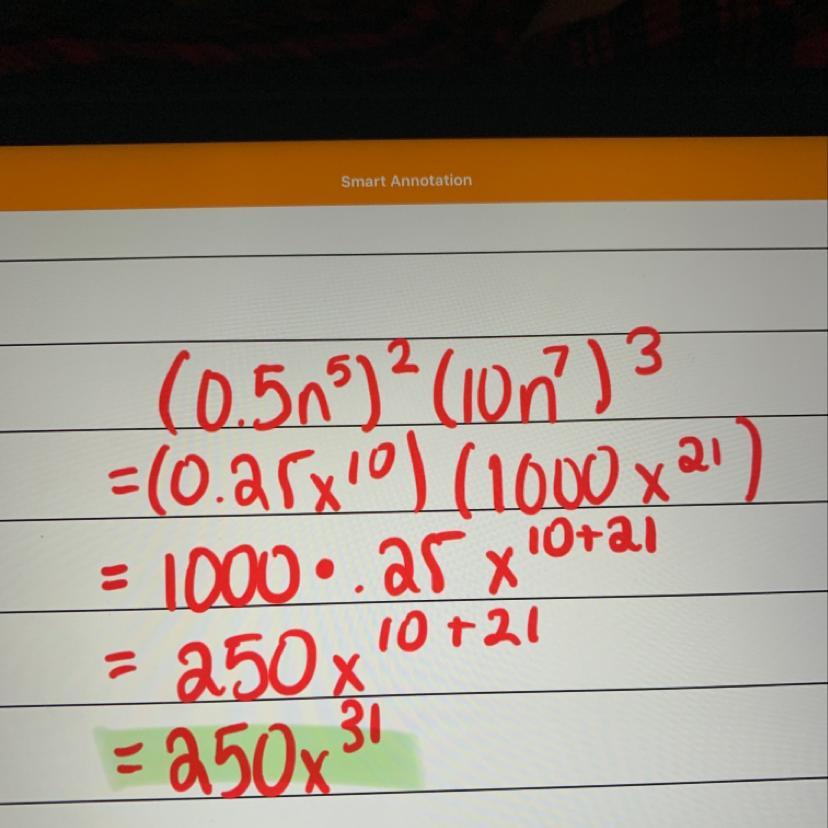 Smart Annotation
(0.5n⁵)² (10n⁷)³
=(0.25x¹⁰) (1000x²¹)
= 1000 • .25 x¹⁰⁺²¹
= 250x¹⁰⁺²¹
= 250x³¹